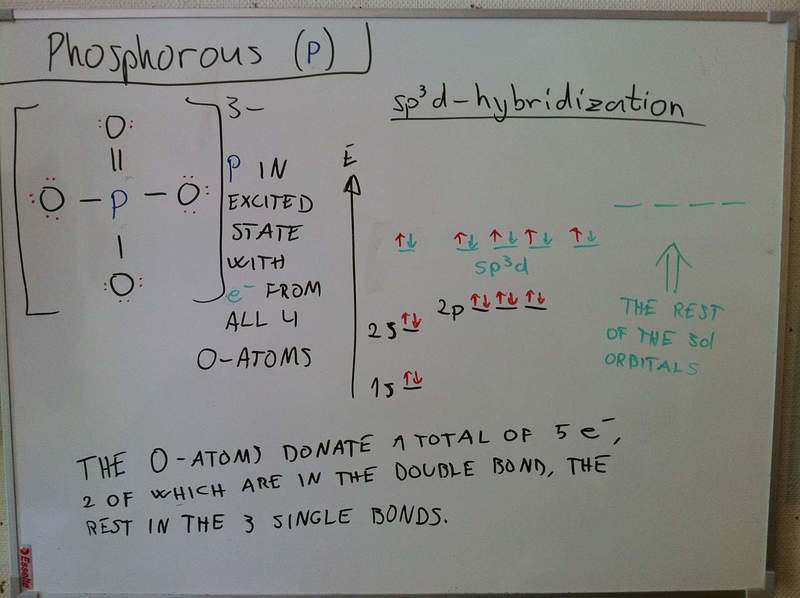 Phosphorous (P)
3-
:O:
||
:O – P – O:
|
:O:
P IN
EXCITED
STATE
WITH
e⁻ FROM
ALL 4
O-ATOMS
sp³d-hybridization
E
↑↓ ↑↓ ↑↓ ↑↓ ↑↓
sp³d
2p ↑↓ ↑↓ ↑↓
2s ↑↓
1s ↑↓
THE REST
OF THE 3d
ORBITALS
THE O-ATOMS DONATE A TOTAL OF 5 e⁻,
2 OF WHICH ARE IN THE DOUBLE BOND, THE
REST IN THE 3 SINGLE BONDS.
Esselte